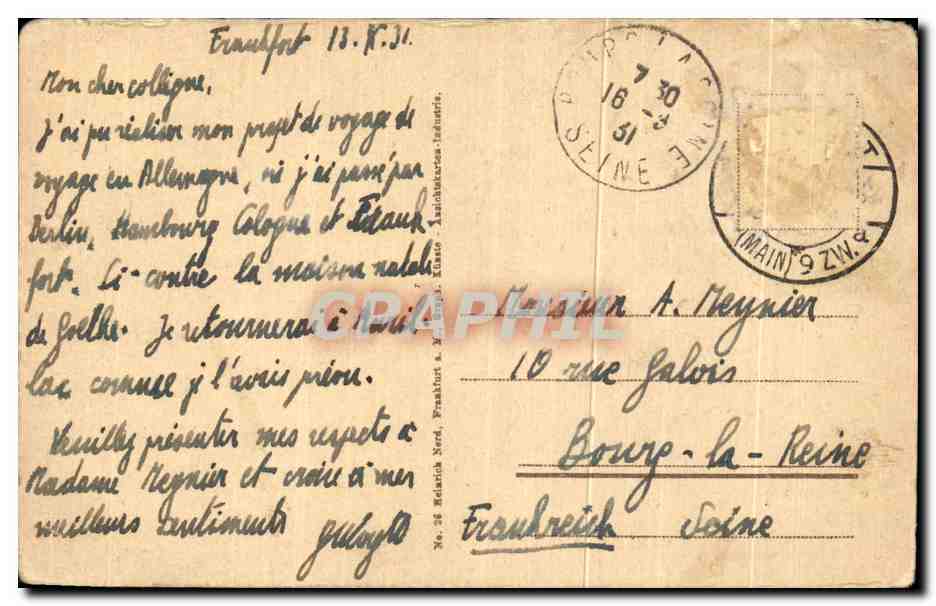 Frankfort 13. IX. 31.
Mon cher collègue,
J'ai pu réaliser mon projet de voyage de
voyage en Allemagne, où j'ai passé par
Berlin, Hambourg Cologne et Frank-
fort. Ci-contre la maison natale
de Goethe. Je retournerai à
comme je l'avais prévu.
Veuillez présenter mes respects à
Madame Meynier et croire à mes
meilleurs sentiments
No. 26 Heinrich Nord, Frankfurt a. M. Graph. Künste - Ansichtskarten-Industrie.
CPAPHIL
BOURG LA REINE
7 30
16 - 9
31
SEINE
(MAIN) 9 ZW.
Monsieur A. Meynier
10 rue Galois
Bourg-la-Reine
Frankreich Seine